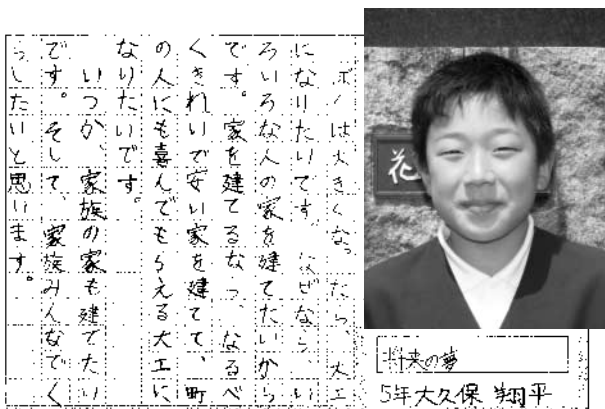 ボクは大きくなったら、大工
になりたいです。なぜなら、い
ろいろな人の家を建てたいから
です。家を建てるなら、なるべ
くきれいで安い家を建てて、町
の人にも喜んでもらえる大工に
なりたいです。
いつか、家族の家も建てたい
です。そして、家族みんなでく
らしたいと思います。
花
将来の夢
5年大久保 翔平